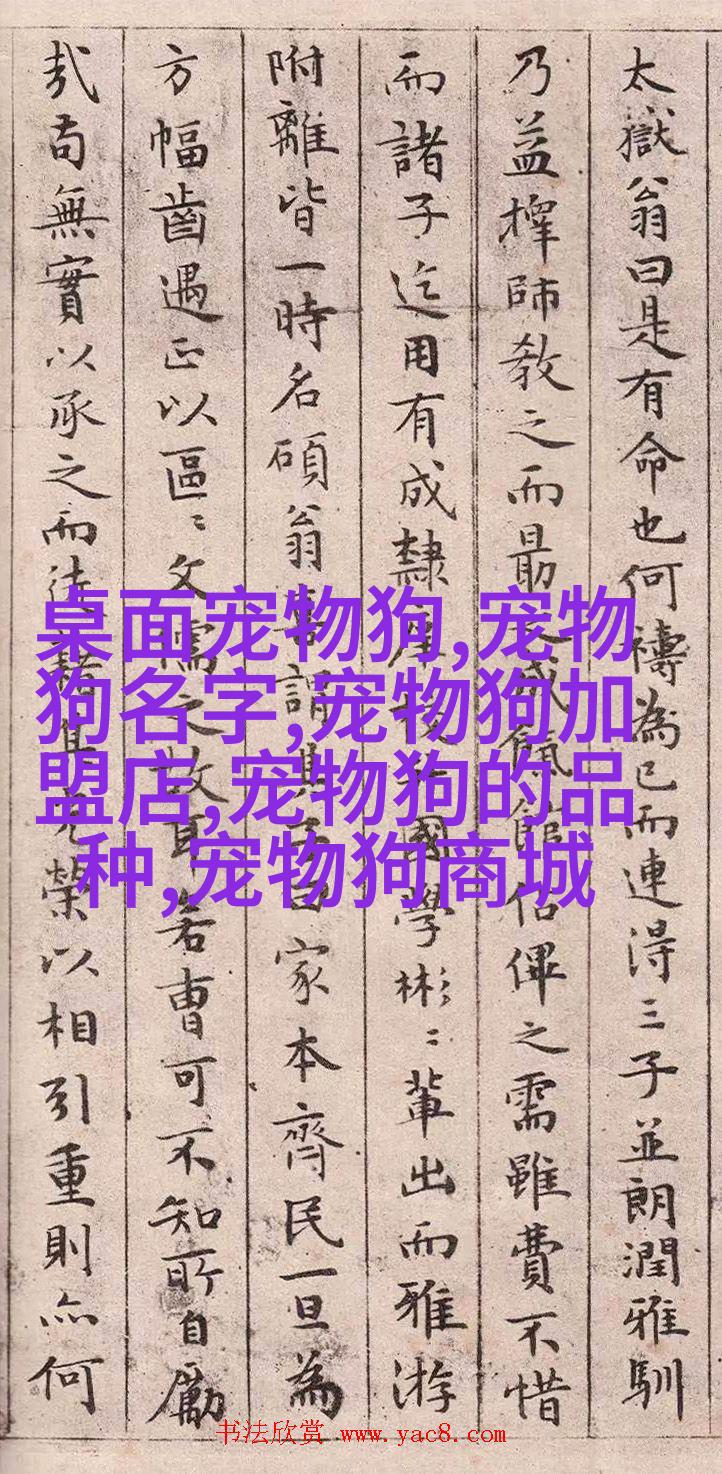 太嶽翁曰是有命也何禱為已而連淂三子並朗潤雅馴
乃益擇師教之而最戚餼館之需雖費不惜
而諸子迄用有成隸國學彬〻輩出而雅游
附離皆一時名碩翁喜謂其曰家本齊民一旦為
方幅齒遇正以區〻文儒之故耳若曹可不知所自勵
哉苟無實以承之而徒藉其光榮以相引重則亦何
桌面宠物狗,宠物
狗名字,宠物狗加
盟店,宠物狗的品
种,宠物狗商城
书法欣赏 www.yac8.com